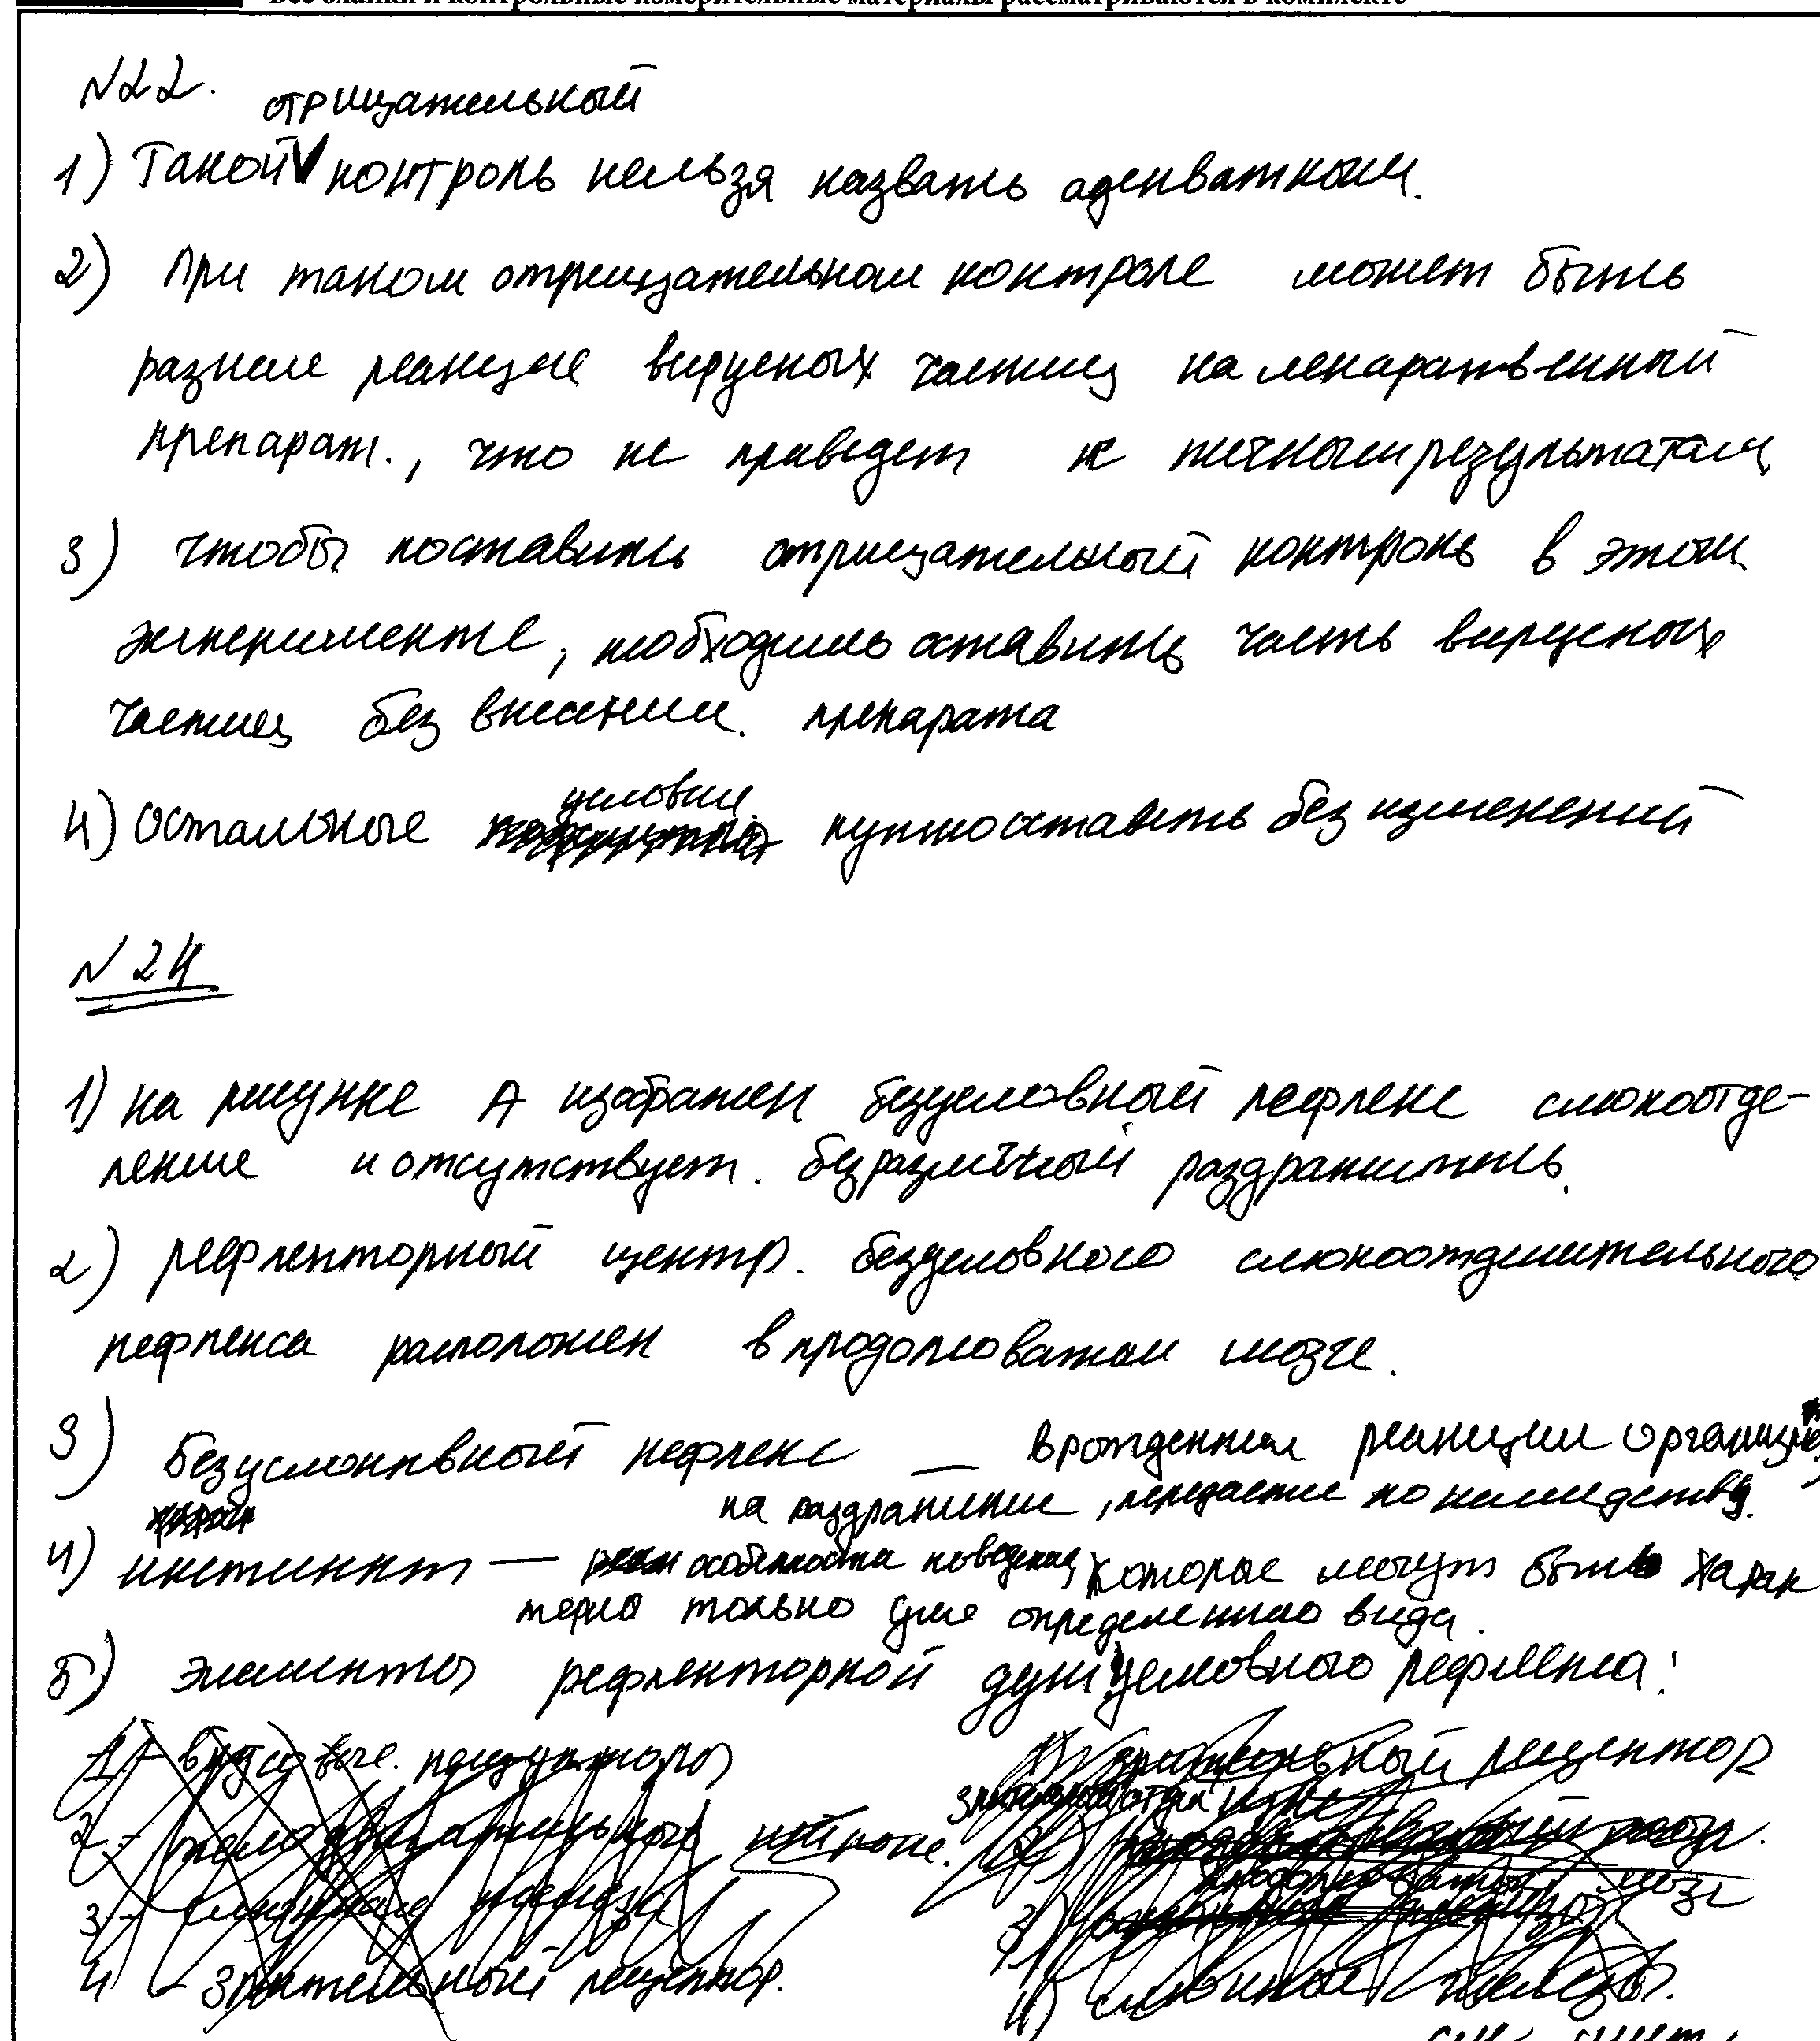 Все бланки и контрольные измерительные материалы рассматриваются в комплекте
№22.
отрицательный
1) Такой V контроль нельзя назвать адекватным.
2) При таком отрицательном контроле может быть
разные реакции вирусных частиц на лекаратвенный
препарат., что не приведет к точным результатам
3) чтобы поставить отрицательный контроль в этом
эксперименте, необходимо оставить часть вирусных
частиц без внесения. препарата
условия
4) Остальные нужно оставить без изменений
№24
1) на рисунке А изображен безусловный рефлекс слюноотде-
ление и отсутствует. безразличный раздражитель.
2) рефлекторный центр. безусловного слюноотделительного
рефлекса расположен в продолговатом мозге.
3) Безусловный рефлекс — врожденная реакции организма
на раздражение, передается по наследству.
4) инстинкт — особенности поведения, которые могут быть харак
терно только для определенно вида.
5) элементы рефлекторной дуги условного рефлекса:
1 - вкусовые.
2 - нейроне.
3 - слюнная железа
4 - зрительный рецептор.
1) зрительный рецептор
продолговатый мозг
3)
4) слюнные железы.